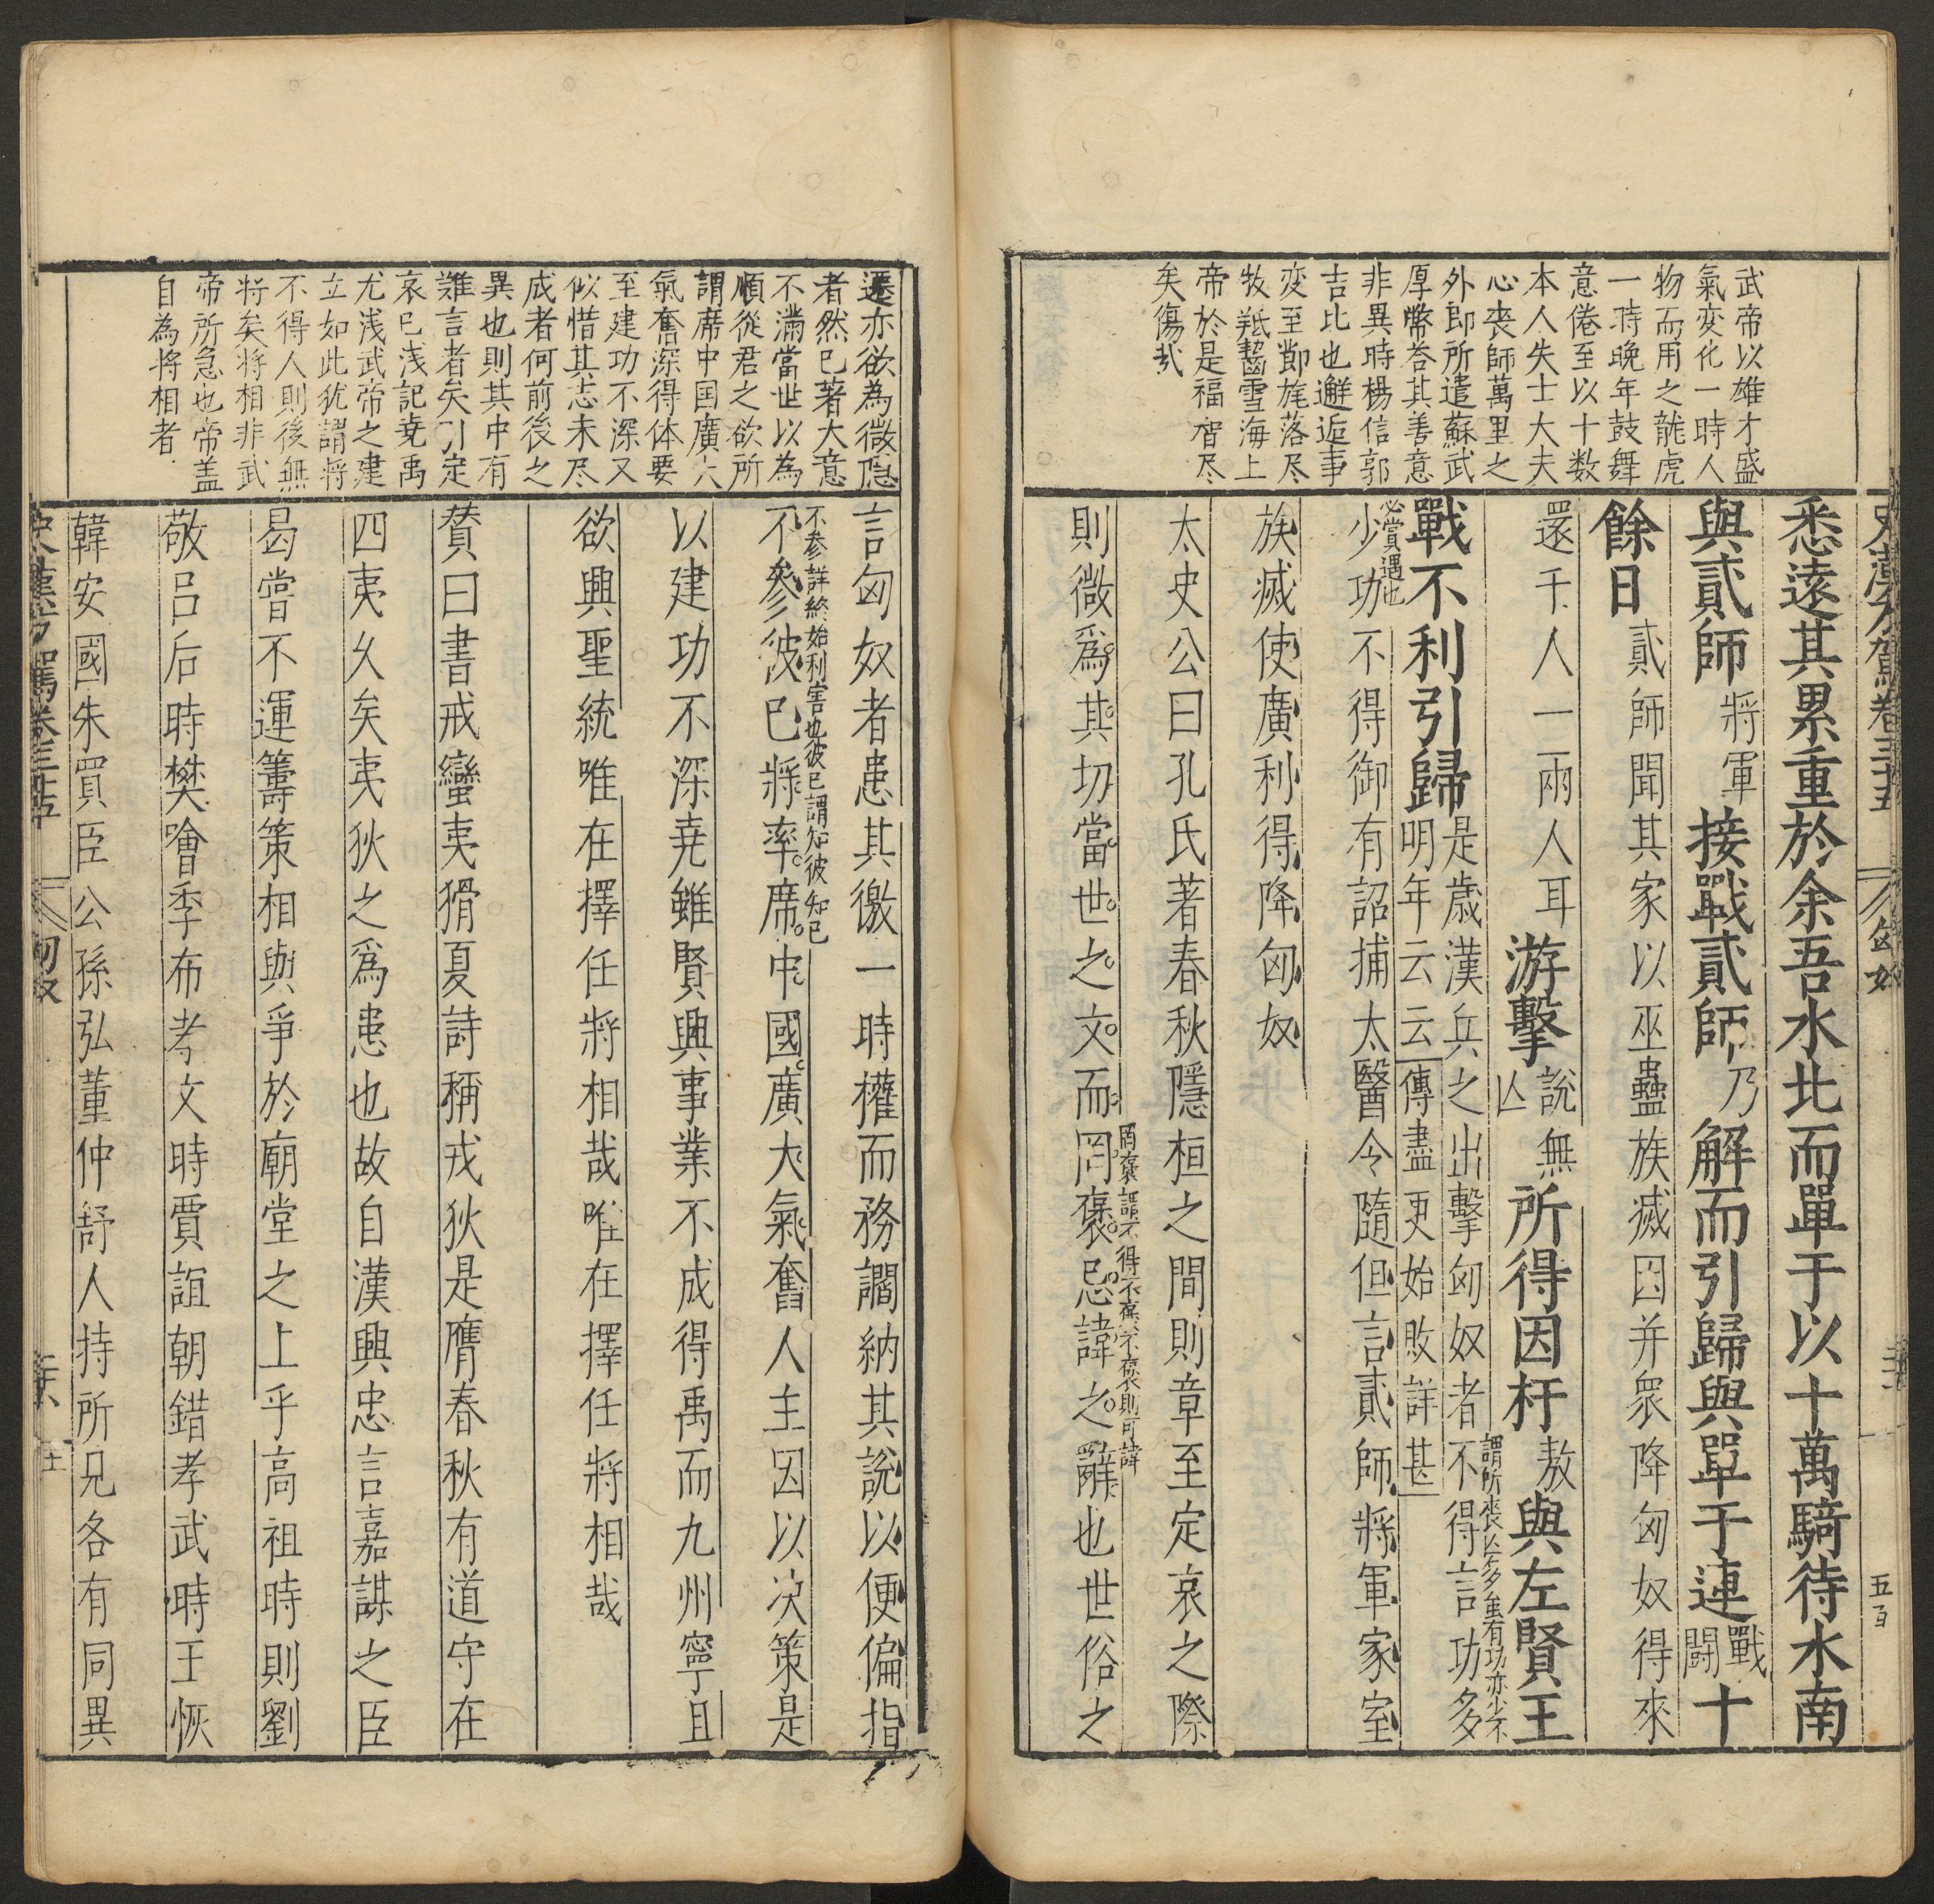 武帝以雄才盛
氣変化一時人
物而用之龍虎
一時晚年鼓舞
意倦至以十数
本人失士大夫
心喪師萬里之
外即所遣蘇武
厚幣荅其善意
非異時楊信郭
吉比也邂逅事
変至節旄落尽
牧羝齧雪海上
帝於是福智尽
矣傷哉
悉遠其累重於余吾水北而單于以十萬騎待水南
與貳師將軍接戰貳師乃解而引歸與單于連戰鬭十
餘日貳師聞其家以巫蠱族滅因并衆降匈奴得來
還千人一二兩人耳游擊說無所得因杅敖與左賢王
戰不利引歸是歳漢兵之出擊匈奴者不得言功多
謂所喪亾多虽有功亦少不
必賞遇也
明年云云傳盡更始敗詳甚
少功不得御有詔捕太醫令隨但言貳師將軍家室
族滅使廣利得降匈奴
太史公曰孔氏著春秋隱桓之間則章至定哀之際
則微爲其切當世之文而罔褒忌諱之辭也世俗之
遷亦欲為微隱
者然已著大意
不滿當世以為
順從君之欲所
謂席中国廣大
氣奮深得体要
至建功不深又
似惜其志未尽
成者何前後之
異也則其中有
難言者矣引定
哀已浅記堯禹
尤浅武帝之建
立如此犹謂將
不得人則後無
将矣将相非武
帝所急也帝盖
自為将相者
言匈奴者患其徼一時權而務讇納其說以便偏指
不参詳終始利害也彼已謂知彼知已
不參彼已將率席中國廣大氣奮人主因以决策是
以建功不深堯雖賢興事業不成得禹而九州寧且
欲興聖統唯在擇任將相哉唯在擇任將相哉
贊曰書戒蠻夷猾夏詩稱戎狄是膺春秋有道守在
四夷久矣夷狄之爲患也故自漢興忠言嘉謀之臣
曷嘗不運籌策相與爭於廟堂之上乎高祖時則劉
敬吕后時樊噲季布孝文時賈誼朝錯孝武時王恢
韓安國朱買臣公孫弘董仲舒人持所見各有同異
匈奴